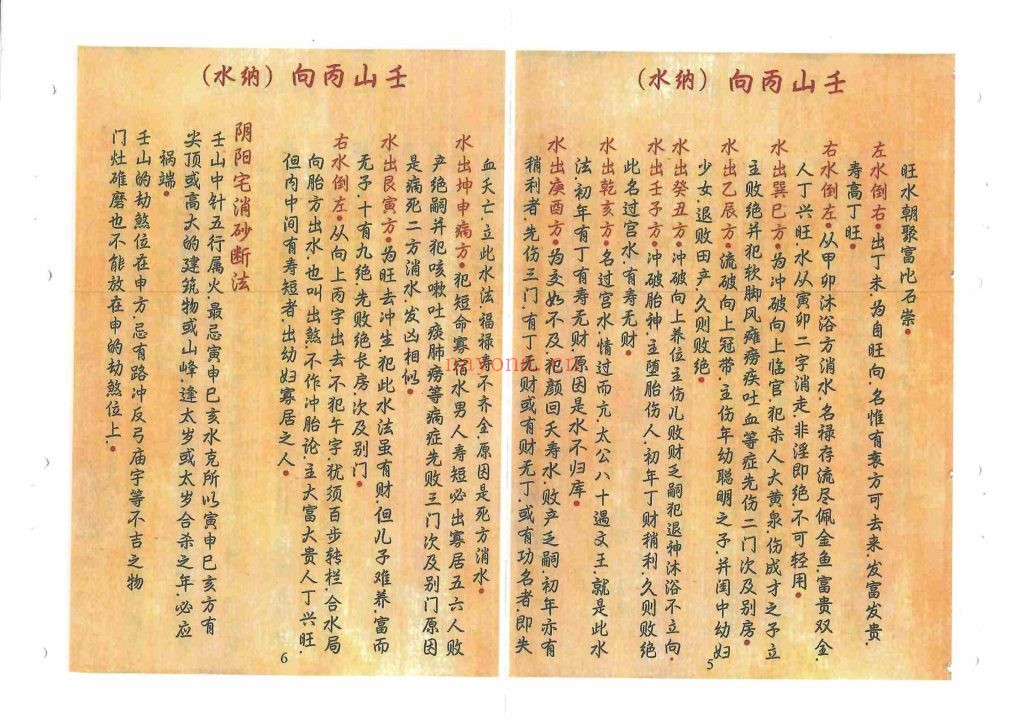 壬山丙向（纳水）
旺水朝聚富比石崇
左水倒右出丁未为自旺向名惟有衰方可去来发富发贵
寿高丁旺
右水倒左从甲卯沐浴方消水名禄存流尽佩金鱼富贵双全
人丁兴旺水从寅卯二字消走非淫即绝不可轻用
水出巽巳方为冲破向上临官犯杀人大黄泉伤成才之子立
主败绝并犯软脚风瘫痨疾吐血等症先伤二门次及别房
水出乙辰方流破向上冠带主伤年幼聪明之子并闺中幼妇
少女退败田产久则败绝
水出癸丑方冲破向上养位主伤儿败财乏嗣犯退神沐浴不立向
水出壬子方冲破胎神主堕胎伤人初年丁财稍利久则败绝
此名过宫水有寿无财
水出乾亥方名过宫水情过而亢太公八十遇文王就是此水
法初年有丁有寿无财原因是水不归库
水出庚酉方为交如不及犯颜回夭寿水败产乏嗣初年亦有
稍利者先伤三门有丁无财或有财无丁或有功名者即失
5
壬山丙向（纳水）
血夭亡立此水法福禄寿不齐全原因是死方消水
水出坤申病方犯短命寡宿水男人寿短必出寡居五六人败
产绝嗣并犯咳嗽吐痰肺痨等病症先败三门次及别门原因
是病死二方消水发凶相似
水出艮寅方为旺去冲生犯此水法虽有财但儿子难养富而
无子十有九绝先败绝长房次及别门
右水倒左从向上丙字出去不犯午字犹须百步转栏合水局
向胎方出水也叫出煞不作冲胎论主大富大贵人丁兴旺
但内中间有寿短者出幼妇寡居之人
阴阳宅消砂断法
壬山中针五行属火最忌寅申巳亥水克所以寅申巳亥方有
尖顶或高大的建筑物或山峰逢太岁或太岁合杀之年必应
祸端
壬山的劫煞位在申方忌有路冲反弓庙宇等不吉之物
门灶碓磨也不能放在申的劫煞位上
6